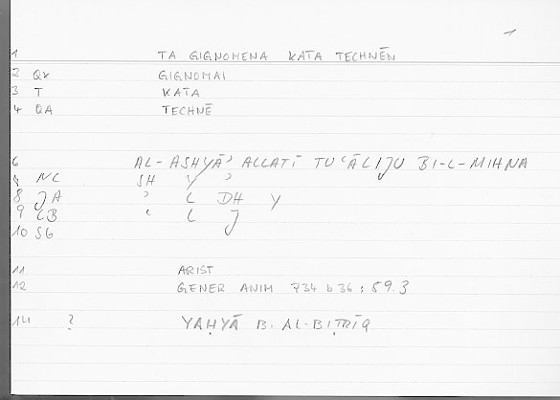 1
1 TA GIGNOMENA KATA TECHNĒN
2 QV GIGNOMAI
3 T KATA
4 QA TECHNĒ
6 AL-ASHYĀʾ ALLATĪ TUʿĀLIJU BI-L-MIHNA
NC SH Y ʾ
8 JA ʾ L DH Y
9 CB ʿ L J
10 SG
11 ARIST
12 GENER ANIM 734 b 36 ; 59.3
14 ? YAḤYĀ B. AL-BIṬRĪQ